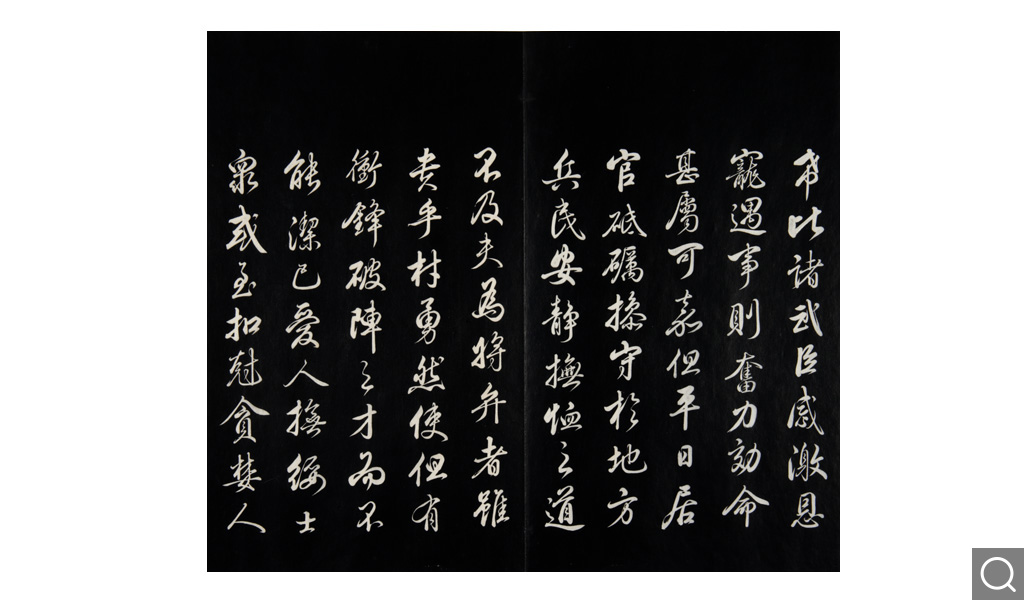 比諸武臣感激恩
寵遇事則奮力効命
甚屬可嘉但平日居
官砥礪操守於地方
兵民安靜撫恤之道
不及夫為將弁者雖
貴乎材勇然使但有
衝鋒破陣之才而不
能潔己愛人撫綏士
衆或至扣尅貪婪人